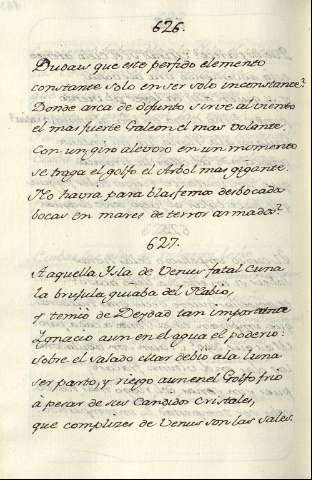 626.
Dudais que este perfido elemento
constante solo en ser solo inconstante?
Donde arca de difunto sirve al viento
el mas fuerte Galeon, el mas volante.
Con un giro alevoso en un momento
se traga el golfo el Arbol mas gigante.
No havrà para blasfemos desbocados
bocas en mares de terror armados?
627.
A aquella Isla de Venus fatal cuna
la brujula, guiaba del Navio,
y temiò de Deydad tan importuna
Ignacio aun en el agua el poderio:
sobre el salado altar debiò a la luna
ser parto, y riego aun en el Golfo frio
à pesar de sus Candidos cristales,
que complizes de Venus son las sales.